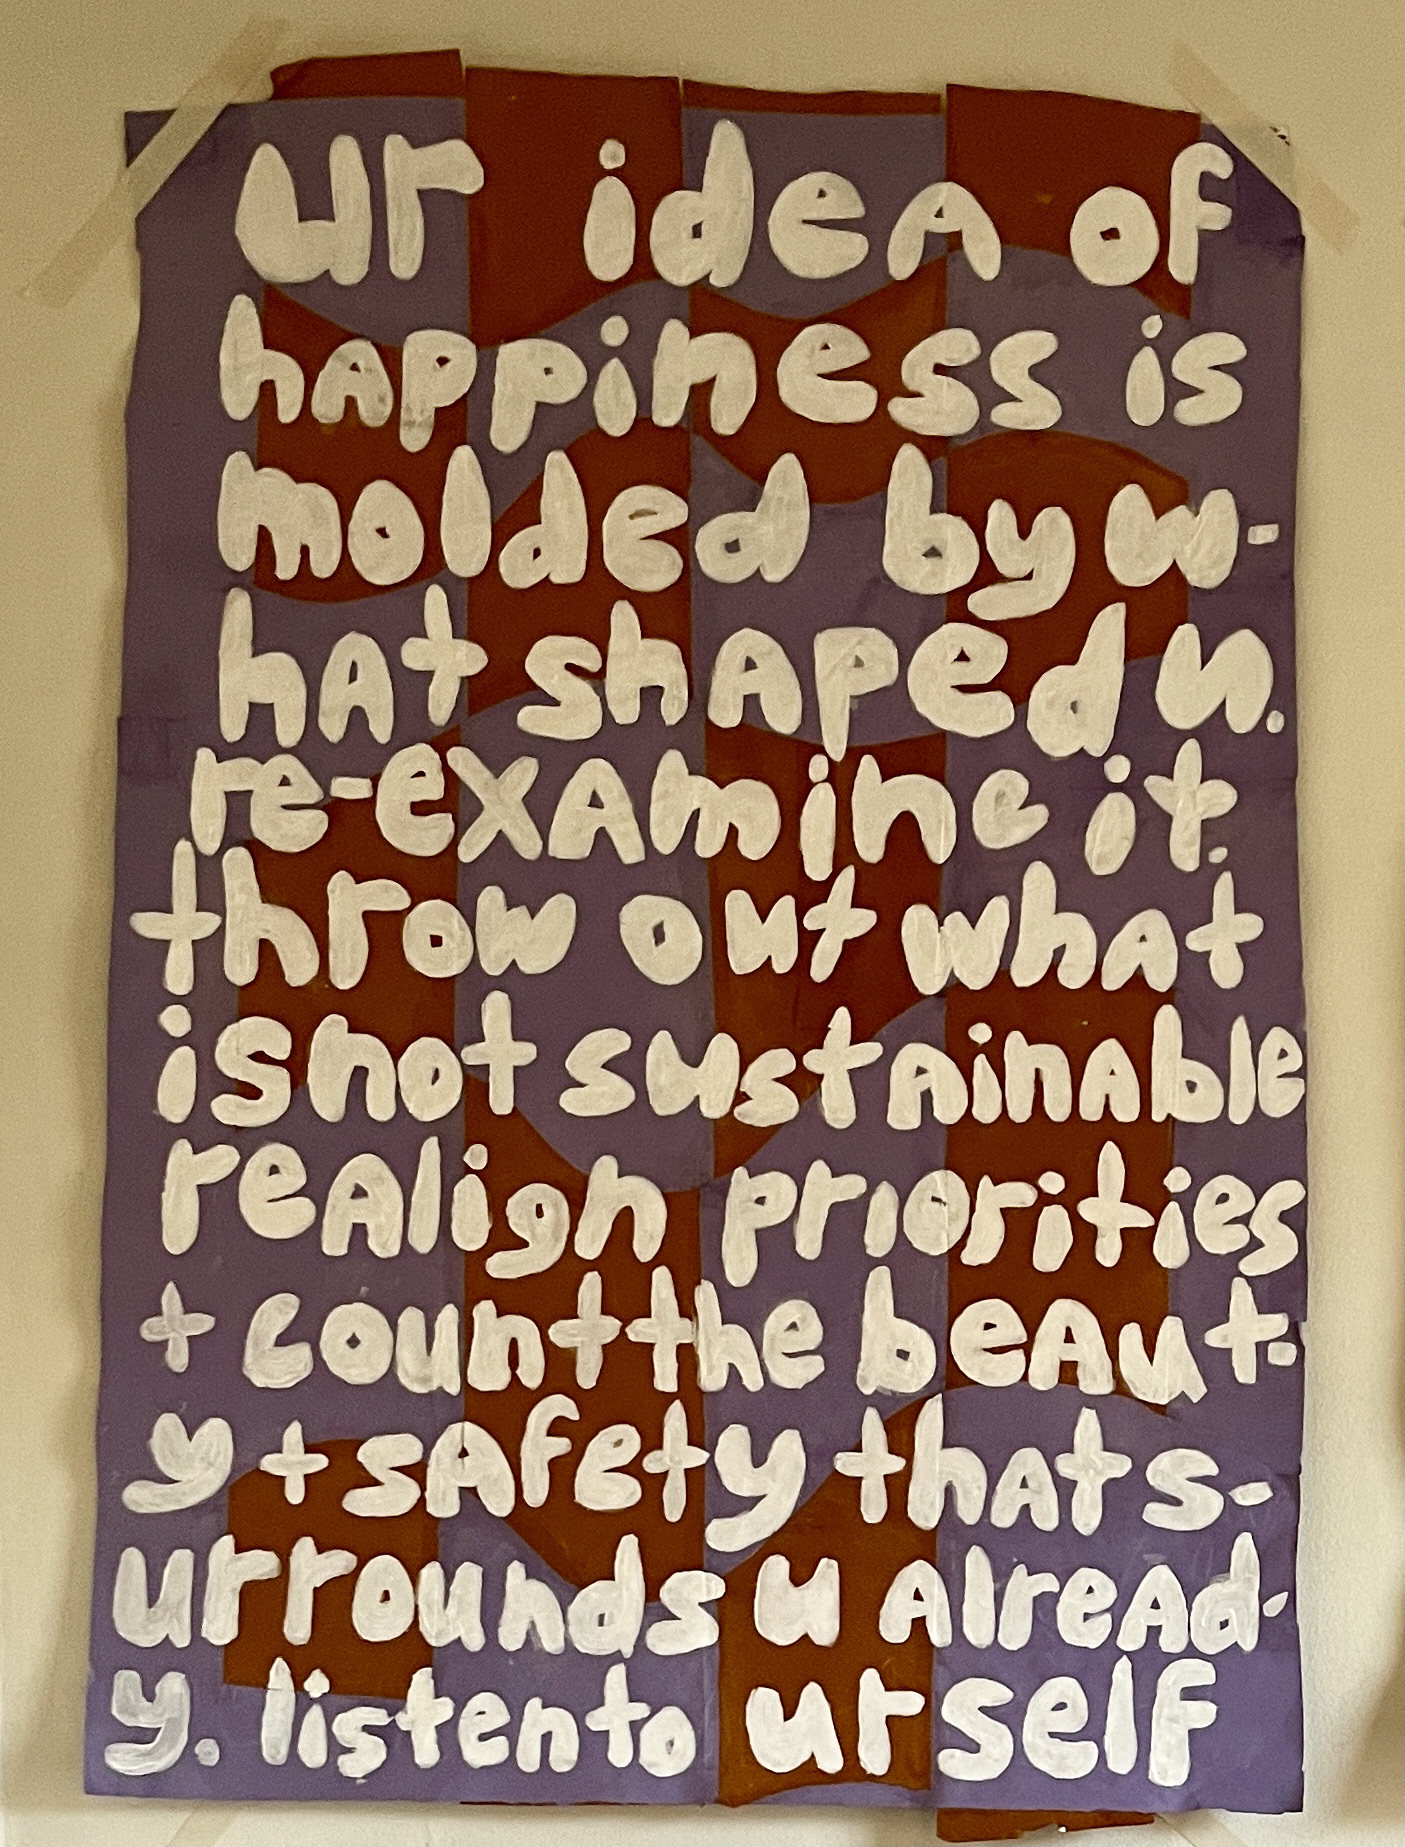 ur ideA of
hAppiness is
molded by w-
hAt shAped u.
re-exAmine it.
throw out whAt
is not sustAinAble
reAlign priorities
+ count the beAut-
y + sAfety thAt s-
urrounds u AlreAd-
y. listen to urself